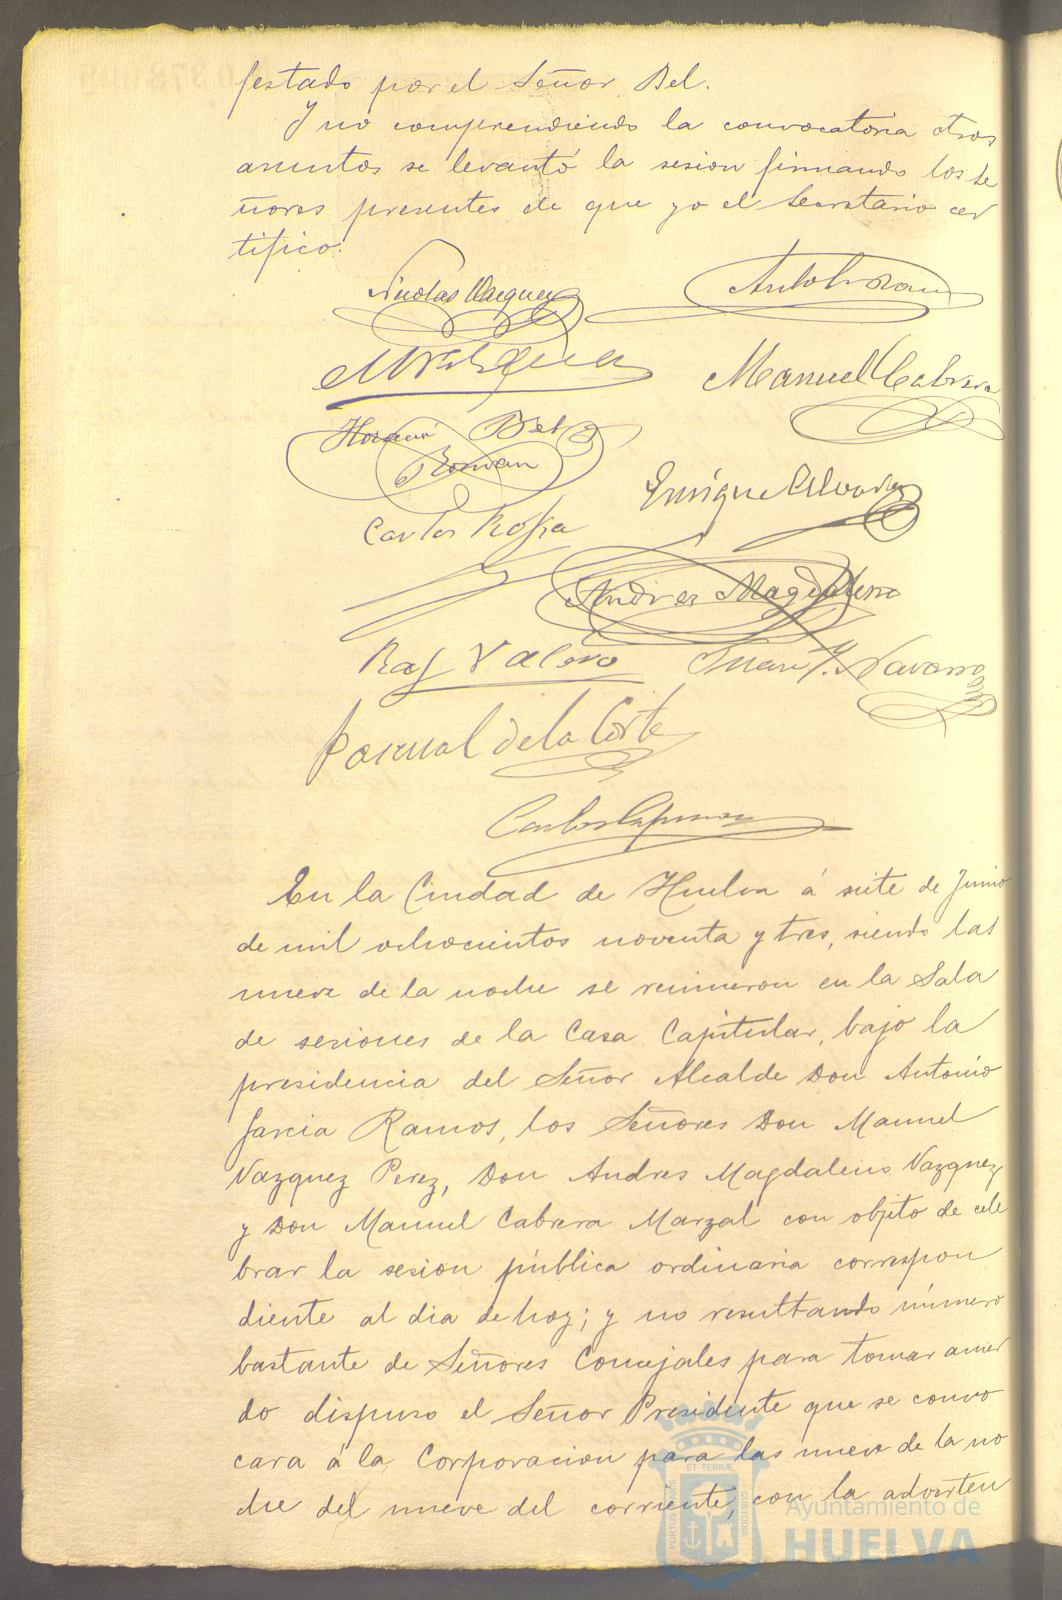 festado por el Señor Bel.
Y no comprendiendo la convocatoria otros
asuntos se levantó la sesion firmando los Se
ñores presentes de que yo el Secretario cer
tifico.
Nicolas Vazquez
M Vazquez
Manuel Cabrera
Horacio Bel
Roman
Enrique
Carlos
Andres Magdaleno
Raf Valero
Juan J. Navarro
Pascual de la Corte
Carlos
En la Ciudad de Huelva á siete de Junio
de mil ochocientos noventa y tres, siendo las
nueve de la noche se reunieron en la Sala
de sesiones de la Casa Capitular, bajo la
presidencia del Señor Alcalde Don Antonio
Garcia Ramos, los Señores Don Manuel
Vazquez Perez, Don Andres Magdaleno Vazquez
y Don Manuel Cabrera Marzal con objeto de cele
brar la sesion pública ordinaria correspon
diente al dia de hoy; y no resultando número
bastante de Señores Concejales para tomar acuer
do dispuso el Señor Presidente que se convo
cara á la Corporacion para las nueve de la no
che del nueve del corriente, con la adverten
Ayuntamiento de
HUELVA
PORTUS MARIS ET TERRÆ CUSTODIA